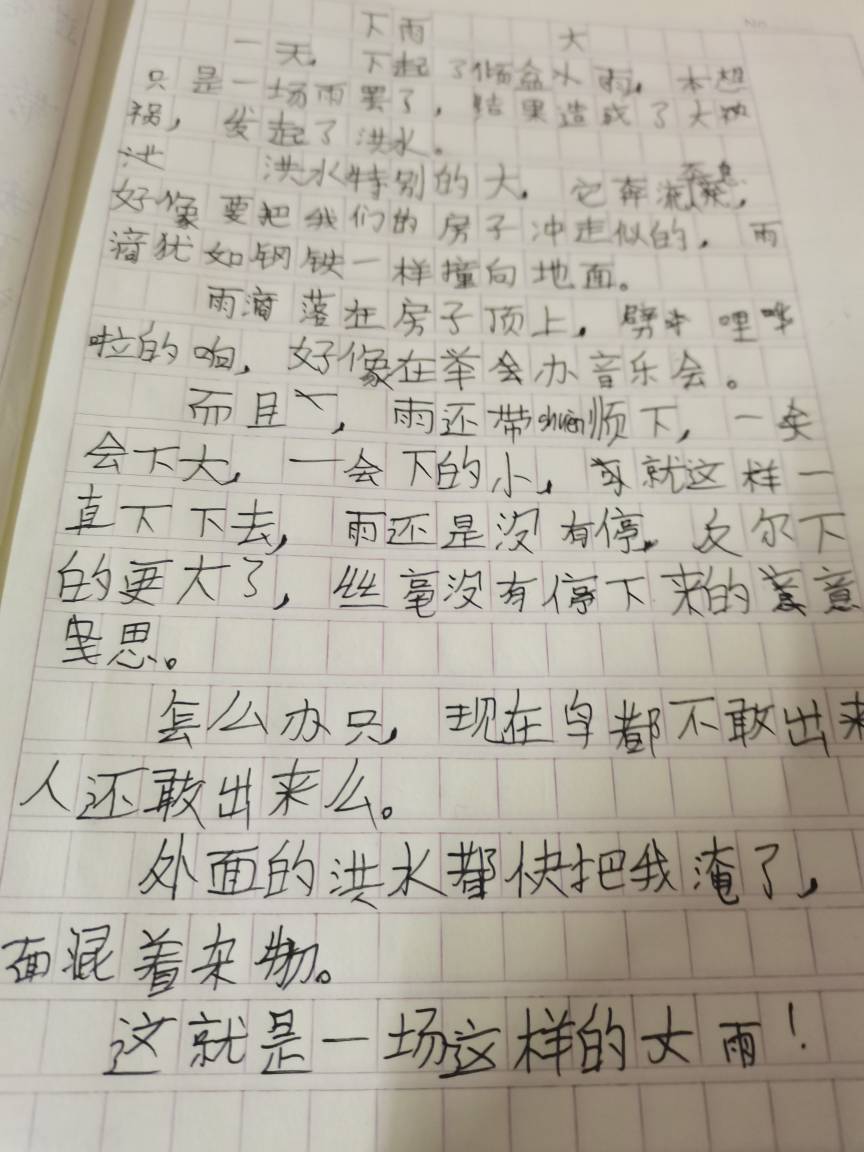 下雨 大
一天，下起了倾盆水雨，本想
只是一场雨罢了，结果造成了大
祸，发起了洪水。
洪水特别的大，它奔流
好像要把我们的房子冲走似的，雨
滴犹如钢铁一样撞向地面。
雨滴落在房子顶上，劈 哩哗
啦的响，好像在举会办音乐会。
而且，雨还带shuen顺下，一
会下大，一会下的小，就这样一
直下下去，雨还是没有停，反尔下
的更大了，丝毫没有停下来的意
思。
怎么办只，现在鸟都不敢出来
人还敢出来么。
外面的洪水都快把我淹了，
面混着杂物。
这就是一场这样的大雨！